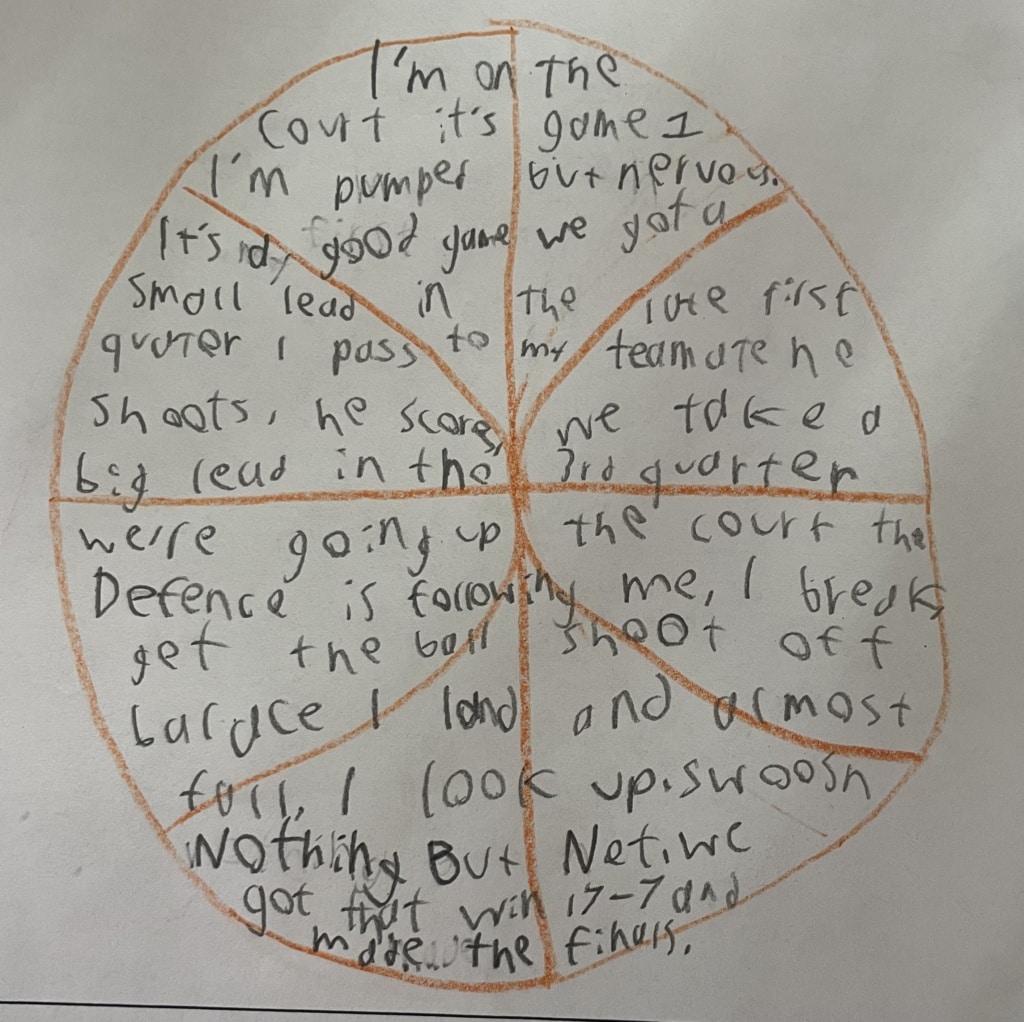 I'm on the
court it's game 1
I'm pumped but nervous.
It's good game we got a
small lead in the late first
quater I pass to my teamate he
shoots, he scores, we take a
big lead in the 3rd quarter
we're going up the court the
Defence is following me, I break,
get the ball shoot off
balace I land and almost
fall, I look up. swoosh
Nothing But Net. we
got that win 17-7 and
made the finals.